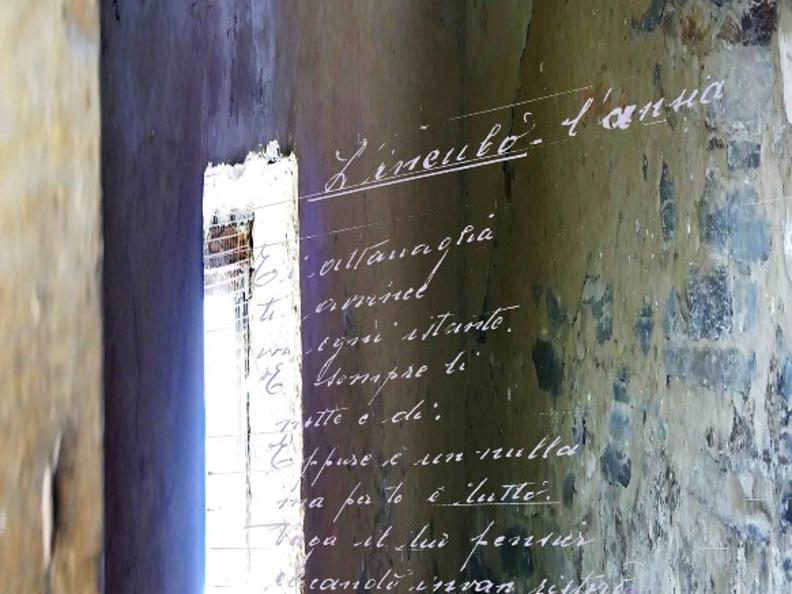 L'incubo - l'ansia
Ti attanaglia
ti avvince
in ogni istante.
E' sempre lì
notte e dì.
Eppure è un nulla
ma per te è tutto.
Vaga il tuo pensier
cercando invan ristoro